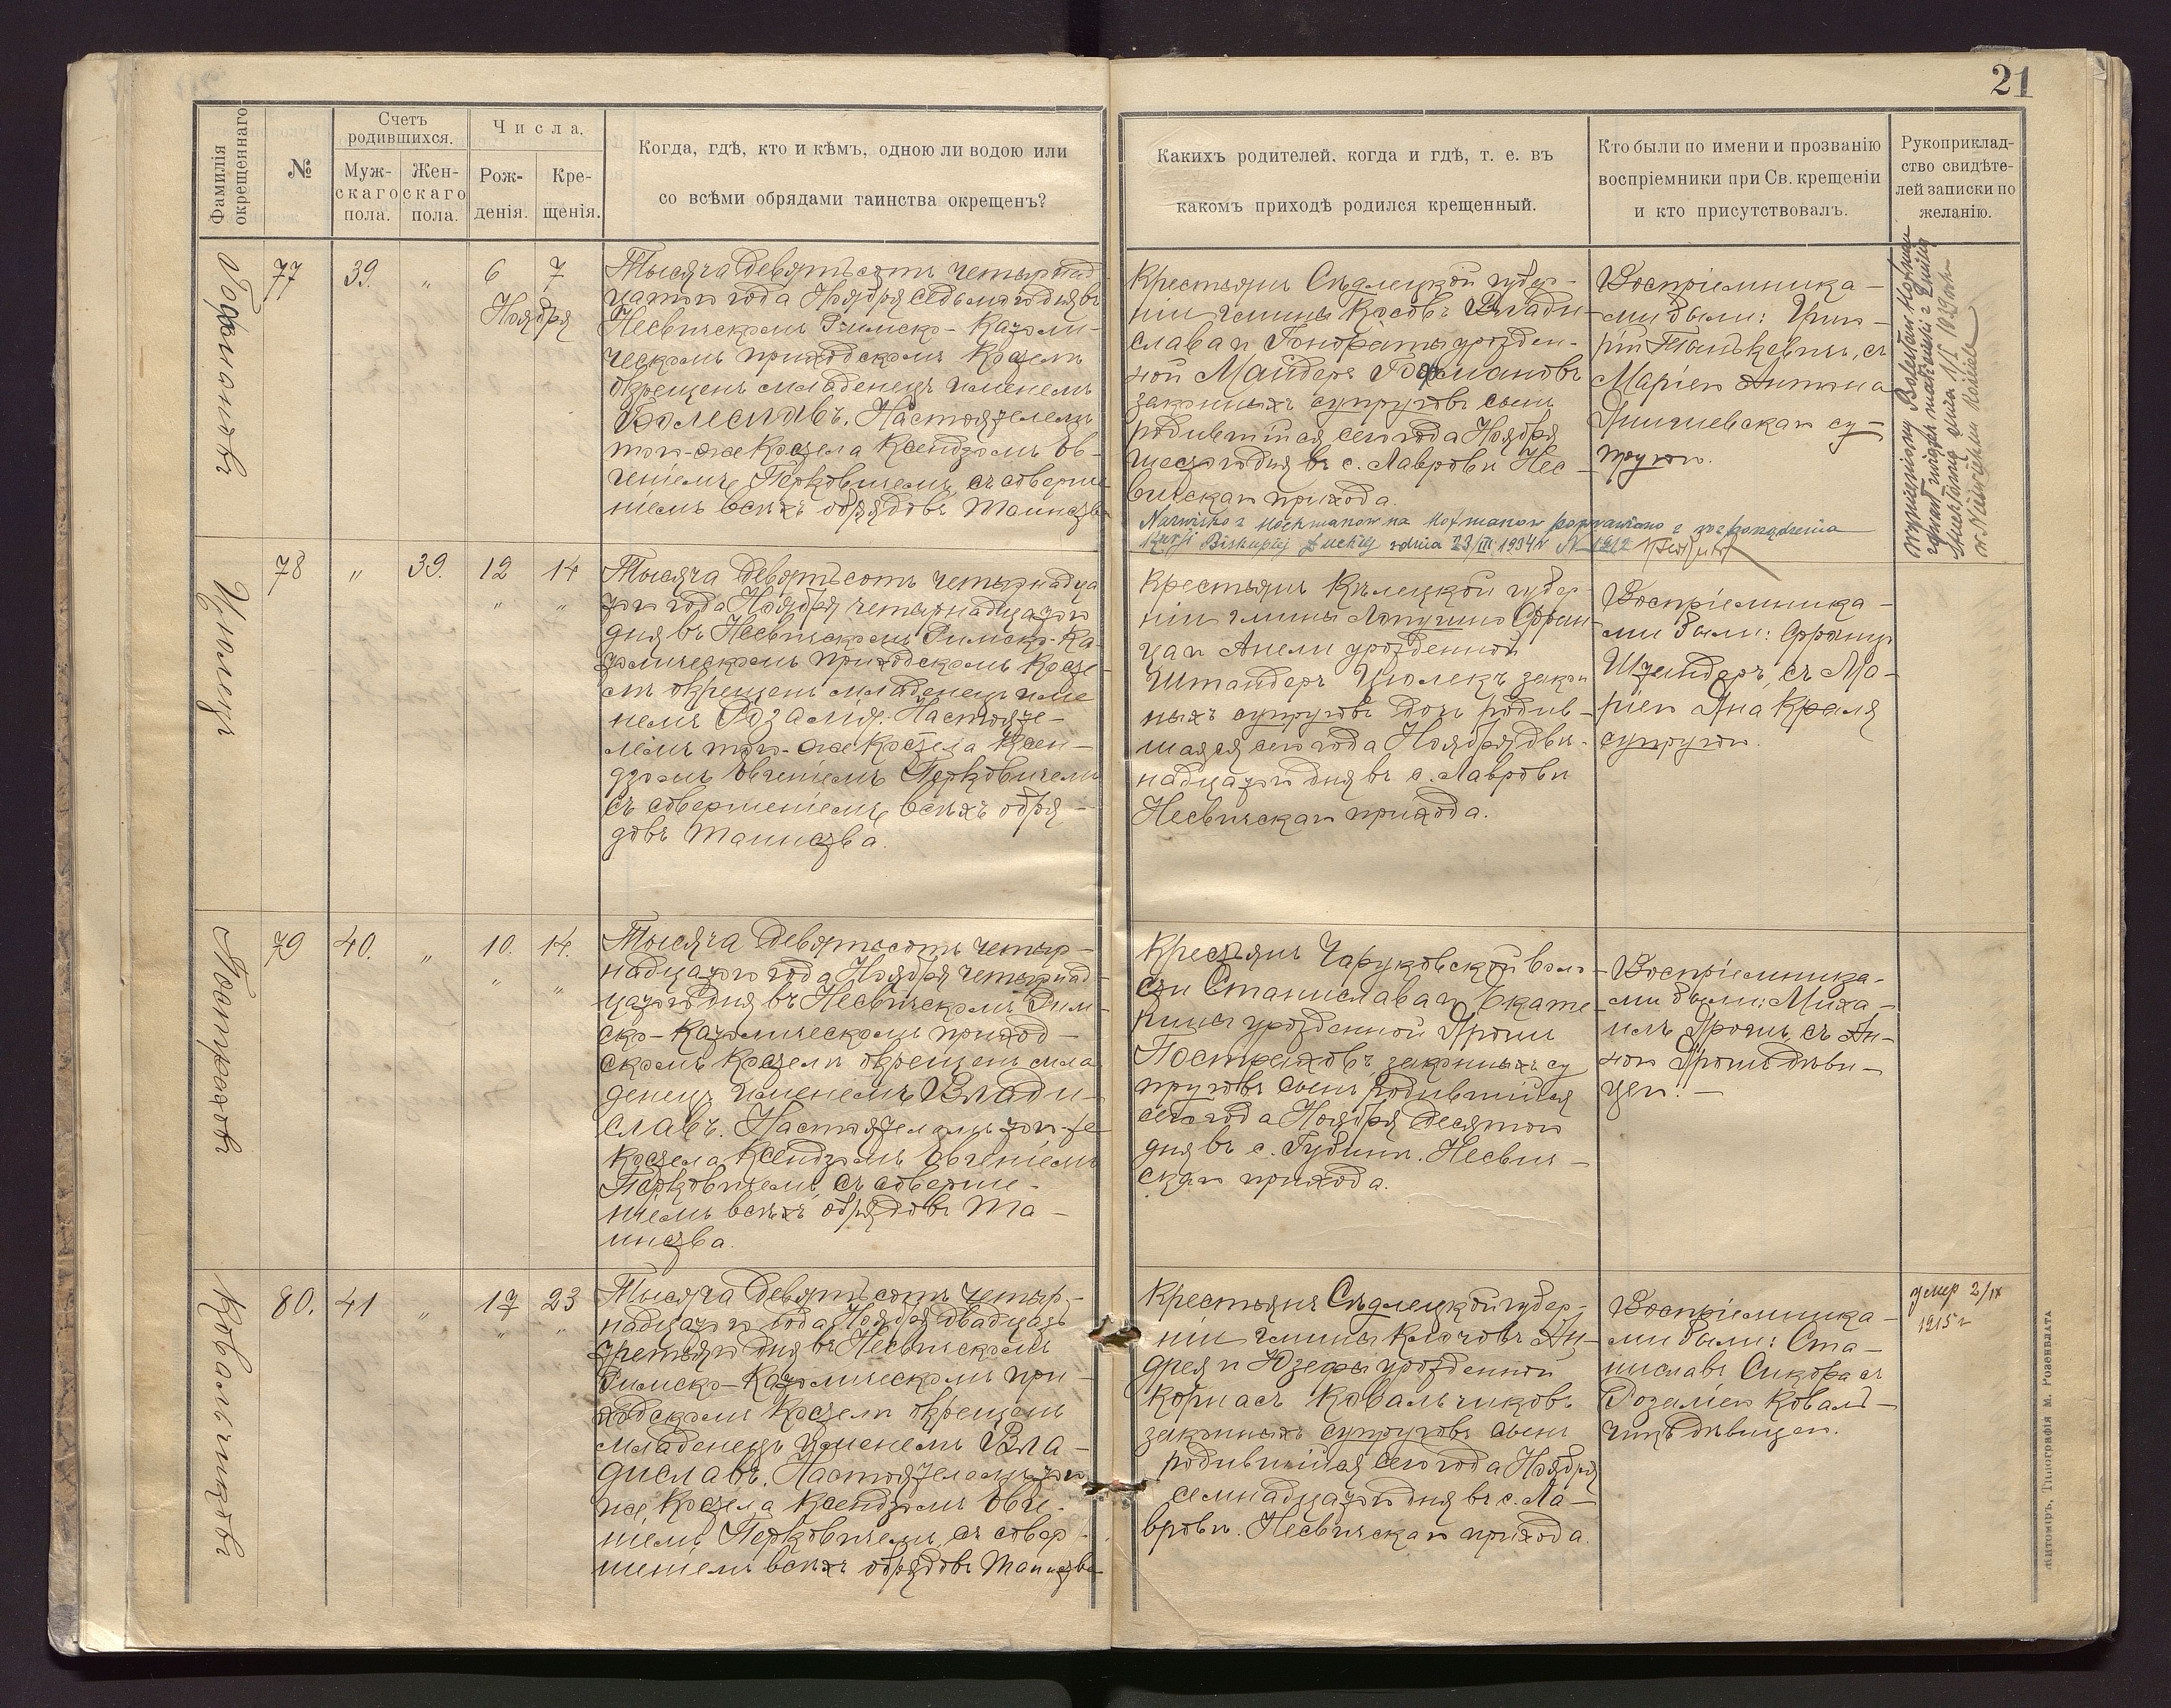 21
Фамилія окрещеннаго
№
Счетъ родившихся.
Муж-
скаго
пола.
Жен-
скаго
пола.
Числа.
Рож-
денія.
Кре-
щенія.
Когда, гдѣ, кто и кѣмъ, одною ли водою или
со всѣми обрядами таинства окрещенъ?
Какихъ родителей, когда и гдѣ, т. е. въ
какомъ приходѣ родился крещенный.
Кто были по имени и прозванію
воспріемники при Св. крещеніи
и кто присутствовалъ.
Рукоприклад-
ство свидѣте-
лей записки по
желанію.
Гофмановъ
77
39.
"
6
7
Ноября
Тысяча девятьсотъ четырнад
цатого года Ноября седьмого дня въ
Несвичскомъ Римско-Католи-
ческомъ приходскомъ Костелѣ
окрещенъ младенецъ именемъ
Болеславъ. Настоятелемъ
того-же Костела Ксендзомъ Ев-
геніемъ Перковичемъ, съ соверше
ніемъ всѣхъ обрядовъ Таинства
Крестьянъ Сѣдлецкой губер-
ніи гмины Косовъ Влади-
слава и Гонораты урожден-
ной Майдеръ Гофмановъ
законныхъ супруговъ сынъ
родившійся сего года Ноября
шестого дня въ с. Лавровѣ Нес-
вичскаго прихода.
Nazwisko z Hochmanow na Hofmanow poprawiono z rozporządzenia
Kurji Biskupiej Łuckiej z dnia 23/III 1934 r N 1212
Воспріемника-
ми были:
съ
Маріею Антона
су-
пругою.
78
"
39.
12
14
"
"
Тысяча девятьсотъ четырнадца
того года Ноября четырнадцатого
дня въ Несвичскомъ Римско-Ка-
толическомъ приходскомъ Косте-
лѣ окрещенъ младенецъ име
немъ Розалія. Настояте-
лемъ того-же Костела Ксен-
дзомъ Евгеніемъ Перковичемъ
съ совершеніемъ всѣхъ обря-
довъ Таинства.
Крестьянъ Кѣлецкой губер-
ніи гмины Лопушно Фран-
ца и Анели урожденной
Штандеръ Цюлекъ закон
ныхъ супруговъ дочь родив-
шаяся сего года Ноября двѣ-
надцатого дня въ с. Лавровѣ
Несвичскаго прихода.
Воспріемника-
ми были: Францъ
Штандеръ, съ Ма-
ріею Яна Краля
супругою.
Постраховъ
79
40.
"
10.
14.
"
"
Тысяча девятьсотъ четыр-
надцатого года Ноября четырнад-
цатого дня въ Несвичскомъ Рим-
ско-Католическомъ приход-
скомъ Костелѣ окрещенъ мла
денецъ именемъ Влади-
славъ. Настоятелемъ того-же
Костела Ксендзомъ Евгеніемъ
Перковичемъ, съ соверше-
ніемъ всѣхъ обрядовъ Та-
инства.
Крестьянъ Чаруковской воло-
сти Станислава и Екате
рины урожденной
Постраховъ, законныхъ су
пруговъ сынъ родившійся
сего года Ноября десятого
дня въ с. Губинѣ. Несвич-
скаго прихода.
Воспріемника-
ми были: Миха-
илъ съ Ан-
ною дѣви-
цею. —
Ковальчиковъ
80.
41
"
17
23
"
"
Тысяча девятьсотъ четыр-
надцатого года Ноября двадцать
третьяго дня въ Несвичскомъ
Римско-Католическомъ при-
ходскомъ Костелѣ окрещенъ
младенецъ именемъ Вла-
диславъ. Настоятелемъ того
же Костела Ксендзомъ Евге-
ніемъ Перковичемъ, съ совер-
шеніемъ всѣхъ обрядовъ Таинства
Крестьянъ Сѣдлецкой губер-
ніи гмины Клочовъ Ан-
дрея и Юзефы урожденной
Корнасъ Ковальчиковъ
законныхъ супруговъ сынъ
родившійся сего года Ноября
семнадцатого дня въ с. Ла-
вровѣ. Несвичскаго прихода.
Воспріемника-
ми были: Ста-
ниславъ Сикора съ
Розаліею Коваль-
чикъ дѣвицею.
умер 2/IX
1915 г
Житоміръ, Типографія М. Розенблата